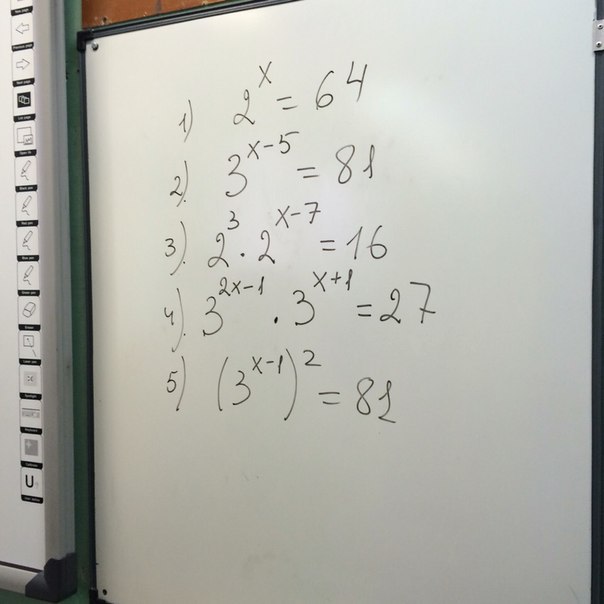 1) 2^x = 64
2) 3^{x-5} = 81
3) 2^3 · 2^{x-7} = 16
4) 3^{2x-1} · 3^{x+1} = 27
5) (3^{x-1})^2 = 81
U